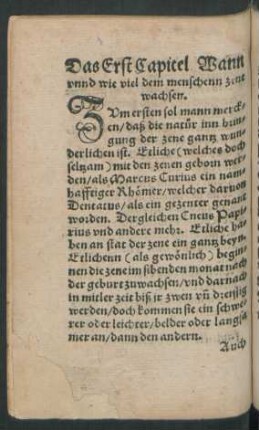 Das Erst Capitel Wann
vnnd wie viel dem menschenn zene
wachsen.
ZVm ersten sol mann merck-
en/ daß die natür inn brin-
gung der zene gantz wun-
derlichen ist. Etliche (welches doch
seltzam) mit den zenen geborn wer-
den/ als Marcus Curius ein nam-
hafftiger Rhömer/ welcher daruon
Dentatus/ als ein gezenter genant
worden. Dergleichen Cneus Papi-
rius vnd andere mehr. Etliche ha-
ben an stat der zene ein gantz beyn.
Etlichenn (als gewönlich) begin-
nen die zene im sibenden monat nach
der geburt zuwachsen/ vnd darnach
in mitler zeit biß jr zwen vñ dreissig
werden/ doch kommen sie ein schwe-
rer oder leichter/ belder oder langsa
mer an/ dann den andern.
Auch